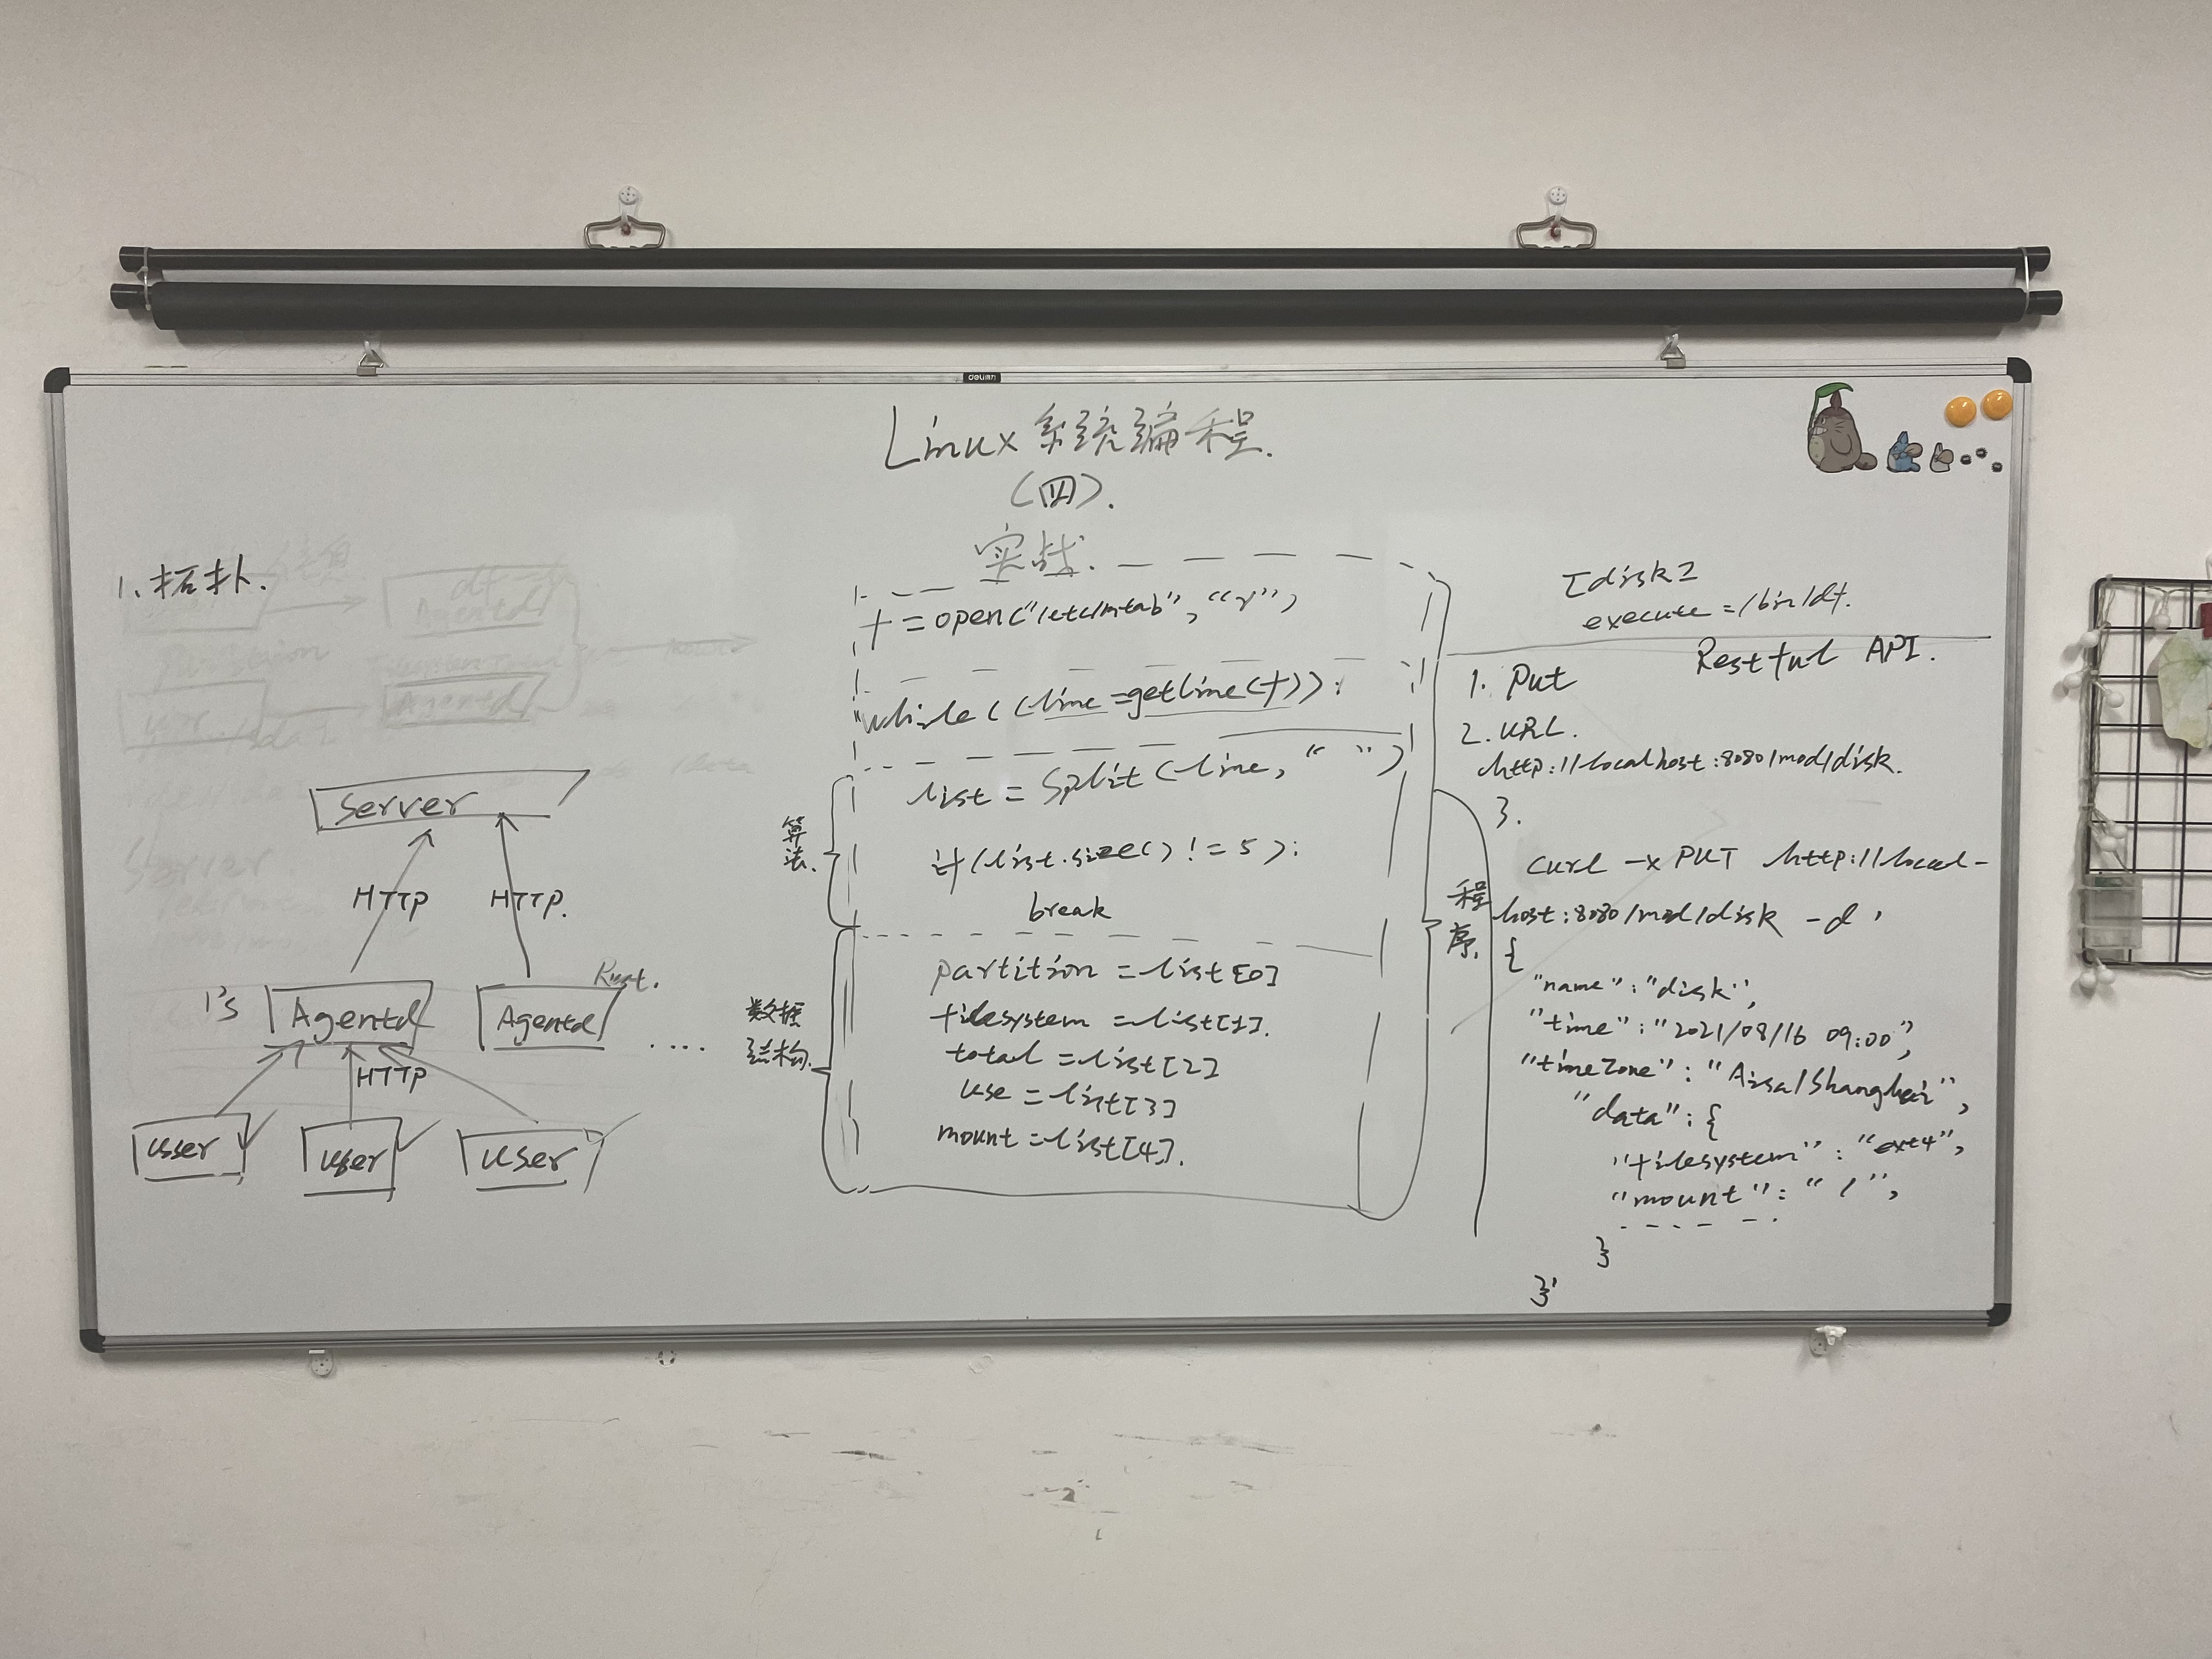 deli
Linux 系统编程.
(四).
实战.
1.拓扑.
Server
HTTP
HTTP.
Rust.
1's
Agentd
Agentd
....
HTTP
user
user
user
f = open("/etc/mtab", "r")
while((line = getline(f)):
list = split(line, " ")
if(list.size() != 5):
break
算法.
partition = list[0]
filesystem = list[1].
total = list[2]
use = list[3]
mount = list[4].
数据
结构.
程序.
[disk]
execute = /bin/df.
Restful API.
1. Put
2. URL.
http://localhost:8080/mod/disk.
3.
curl -x PUT http://local-
host:8080/mod/disk -d '
{
"name":"disk",
"time":"2021/08/16 09:00",
"timeZone":"Aisa/Shanghai",
"data":{
"filesystem":"ext4",
"mount":"/",
------
}
}'